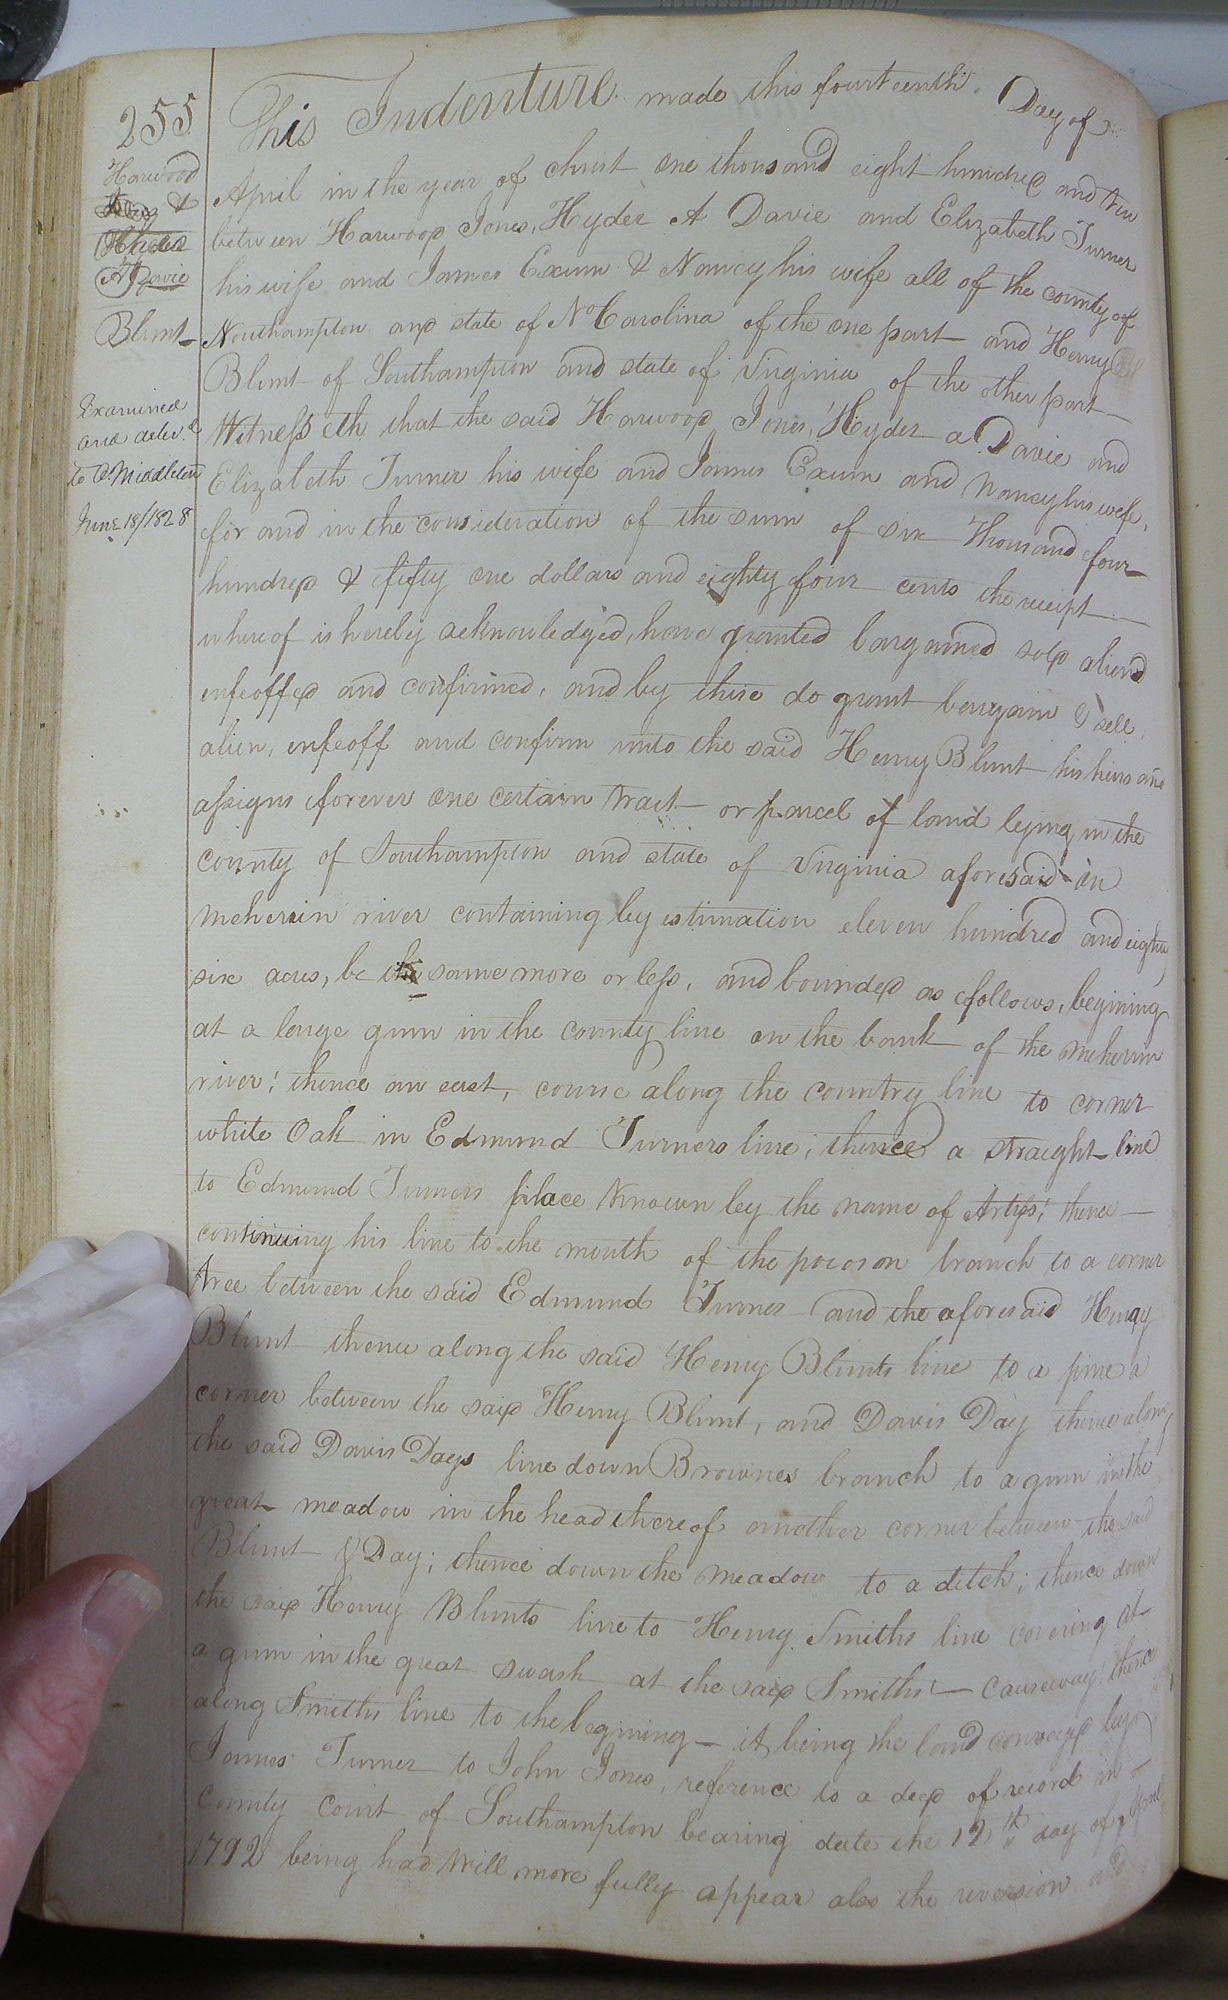 255
Harwood
&
Hyder
A Davie
Blunt
Examined
and deliv.d
to C. Middleton
June 18/1828
This Indenture made this fourteenth Day of
April in the year of christ one thousand eight hundred and ten
between Harwood Jones, Hyder A Davie and Elizabeth Turner
his wife and James Exum & Nancy his wife all of the county of
Northampton and state of No Carolina of the one part and Henry
Blunt of Southampton and state of Virginia of the other part
Witnesseth that the said Harwood Jones, Hyder a Davie and
Elizabeth Turner his wife and James Exum and Nancy his wife,
for and in the consideration of the sum of six Thousand four
hundred & fifty one dollars and eighty four cents the receipt
whereof is hereby acknowledged, have granted bargained sold aliend
enfeoffed and confirmed, and by these do grant bargain & sell,
alien, enfeoff and confirm unto the said Henry Blunt his heirs and
assigns forever one certain tract or parcel of land lying in the
county of Southampton and state of Virginia aforesaid in
Meherrin river containing by estimation eleven hundred and eighty
six acres, be the same more or less, and bounded as follows, begining
at a large gum in the county line on the bank of the meherrin
river; thence an east, course along the country line to corner
white Oak in Edmund Turners line; thence a straight line
to Edmund Turners place known by the name of Artiss; thence
continuing his line to the mouth of the pocoson branch to a corner
tree between the said Edmund Turner and the aforesaid Henry
Blunt thence along the said Henry Blunts line to a pine a
corner between the said Henry Blunt, and Davis Day thence along
the said Davis Days line down Brownes branch to a gum in the
great meadow in the head thereof another corner between the said
Blunt & Day; thence down the meadow to a ditch; thence down
the said Henry Blunts line to Henry Smiths line covering at
a gum in the great swash at the said Smiths' causeway; thence
along Smiths line to the begining it being the land conveyed by
James Turner to John Jones, reference to a deed of record in
County Court of Southampton bearing date the 12th day of April
1792 being had will more fully appear also the reversion and